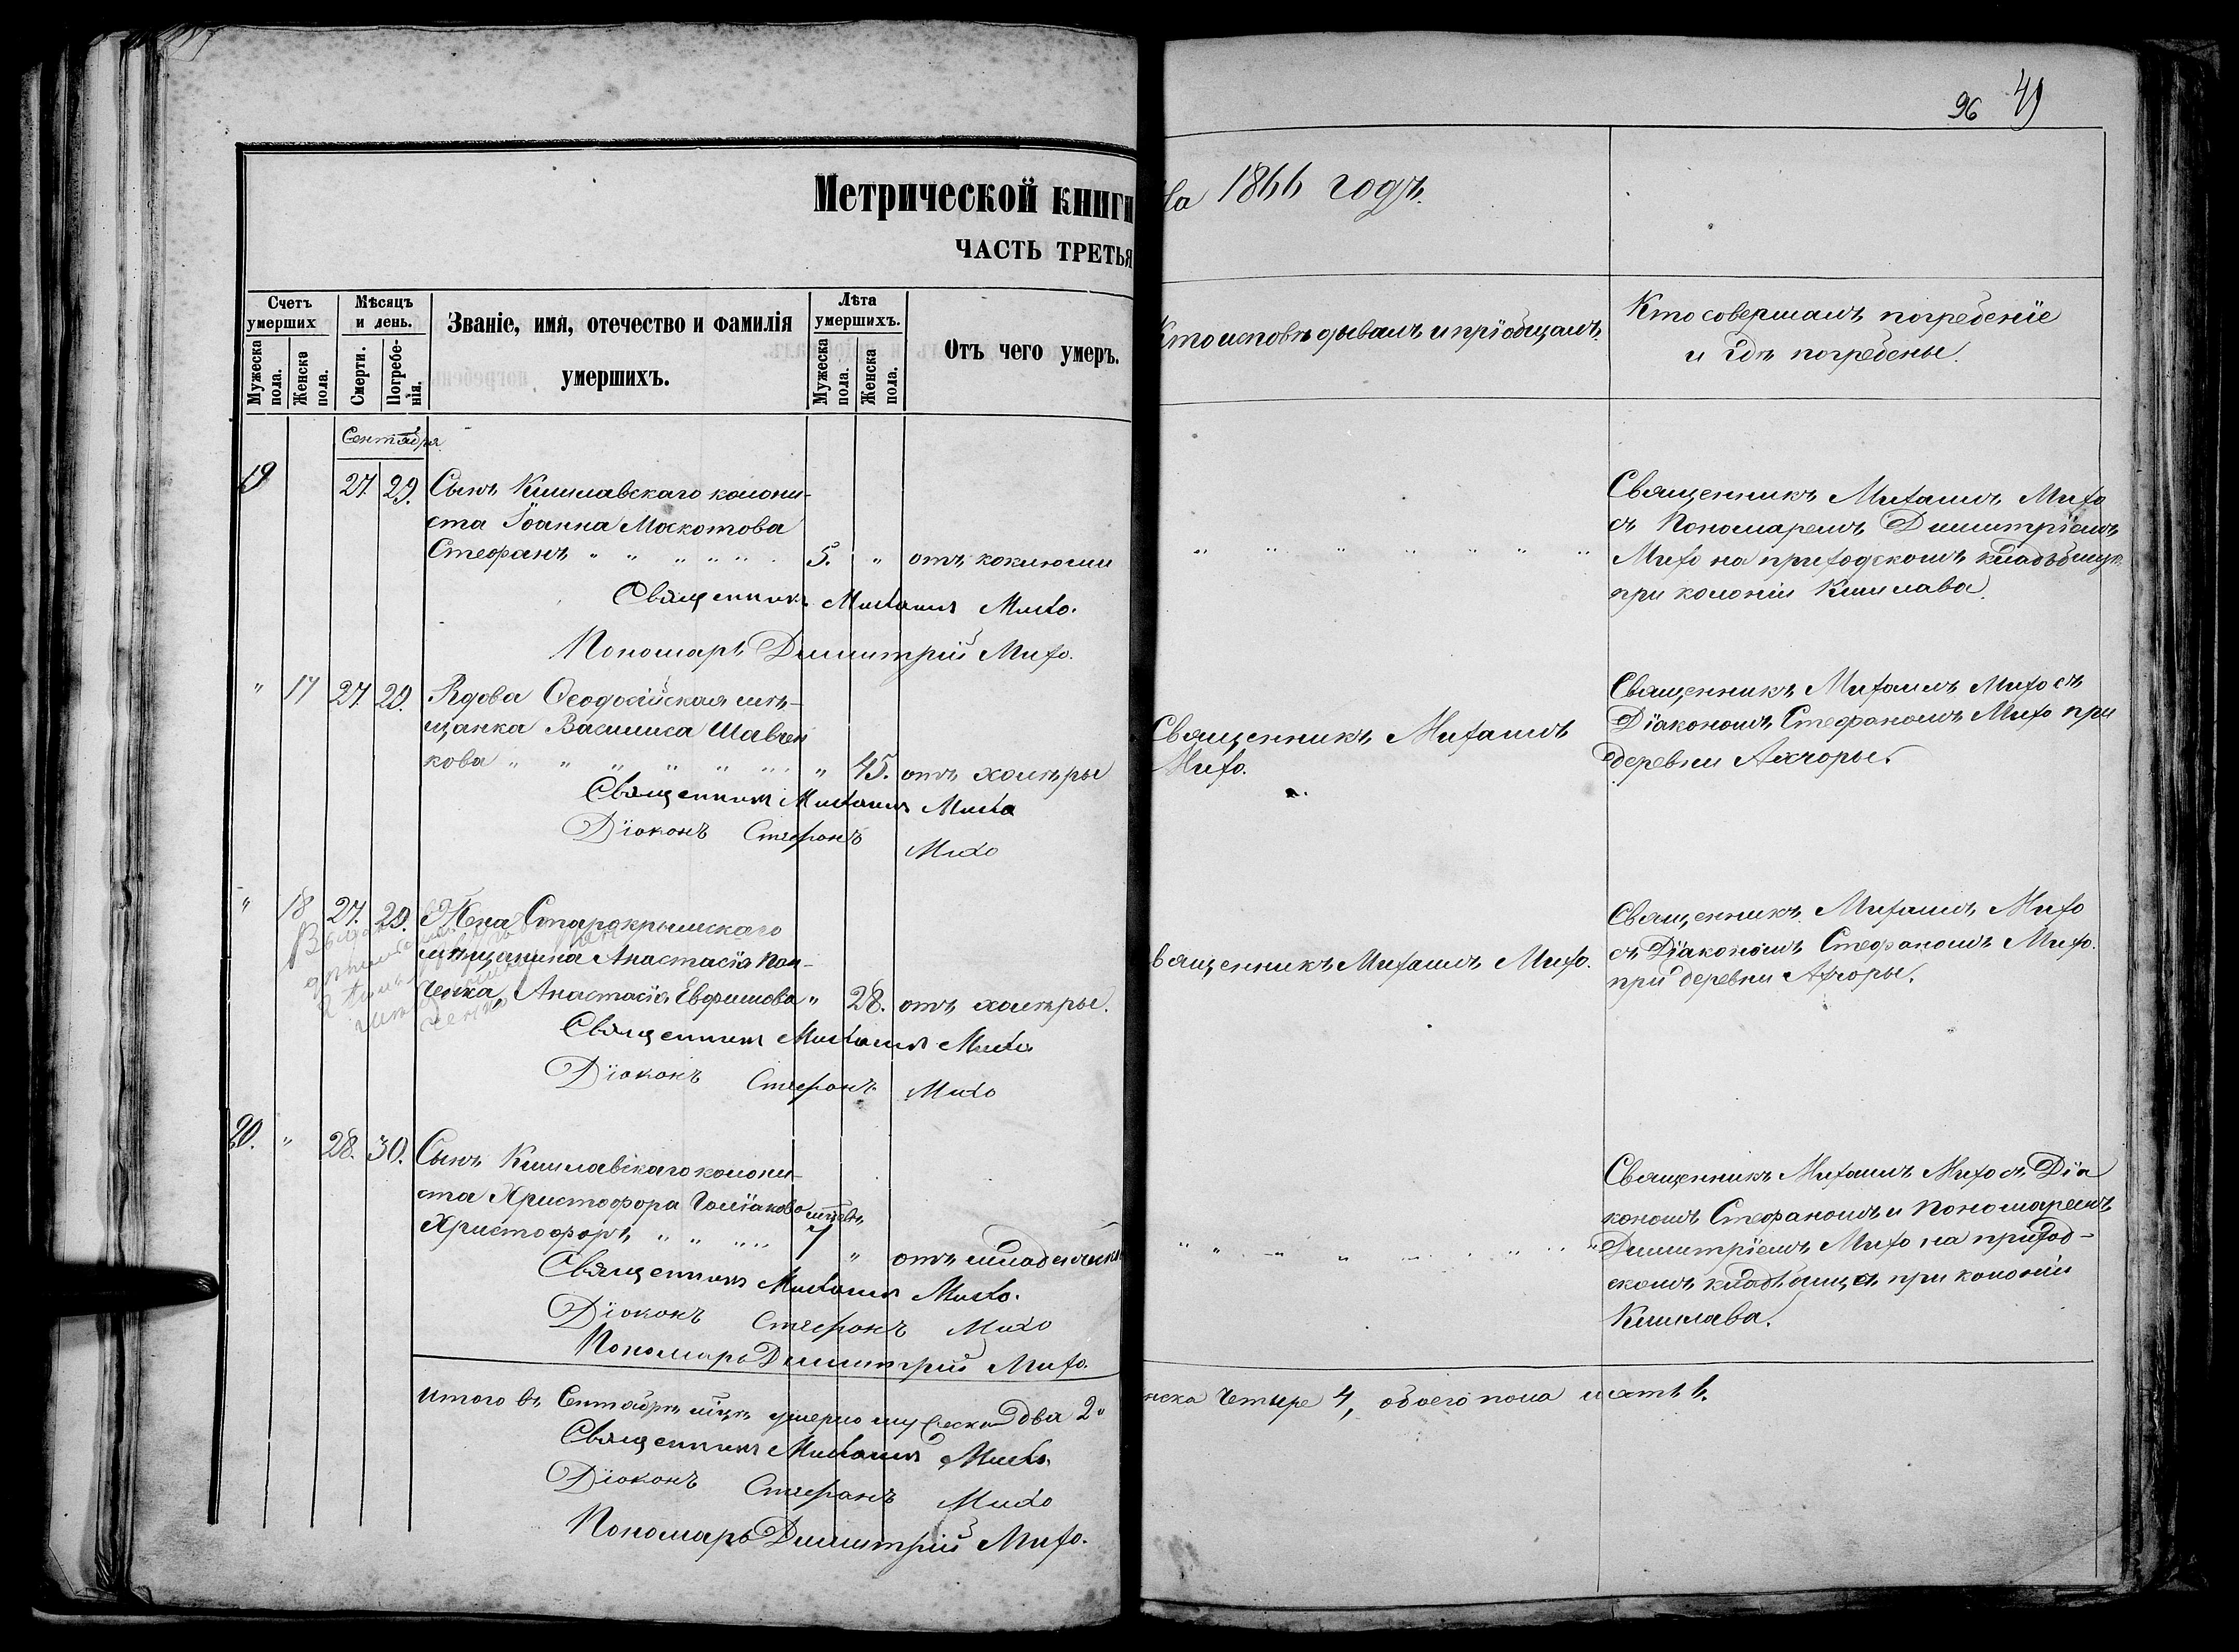 96 49
Метрической книги на 1866 годъ.
ЧАСТЬ ТРЕТЬЯ
Счетъ умершихъ
Мужеска пола.
Женска пола.
Мѣсяцъ и день.
Смерти.
Погребенія.
Званіе, имя, отечество и фамилія
умершихъ.
Лѣта умершихъ.
Мужеска пола.
Женска пола.
Отъ чего умеръ.
Кто исповѣдывалъ и пріобщалъ.
Кто совершалъ погребеніе
и гдѣ погребены.
Сентября
19 27. 29. Сынъ Кишлавскаго колони-
ста Іоанна Москотова
Стефанъ " " " " " 5. " отъ коклюши
Священникъ Михаилъ Михо.
Пономарь Димитрій Михо.
Священникъ Михаилъ Михо
съ Пономаремъ Димитріемъ
Михо на приходскомъ кладбищѣ
при колоніи Кишлава.
" 17 27. 29. Вдова Ѳеодосійская мѣ-
щанка Василиса Шавчен
кова " " " " " " " 45. отъ холеры
Священникъ Михаилъ Михо
Діаконъ Стефанъ Михо
Священникъ Михаилъ
Михо.
Священникъ Михаилъ Михо съ
Діакономъ Стефаномъ Михо при
деревни Ахчоры.
" 18 27. 29. Жена Старокрымскаго
мѣщанина Анастасія Пан-
ченка, Анастасія Евфимова " 28. отъ холеры.
Священникъ Михаилъ Михо
Діаконъ Стефанъ Михо
вященникъ Михаилъ Михо.
Священникъ Михаилъ Михо
съ Діакономъ Стефаномъ Михо.
при деревни Ахчоры.
20. " 28. 30. Сынъ Кишлавскаго колони-
ста Христофора
Христофоръ " " " " 7 " отъ младенческ
Священникъ Михаилъ Михо.
Діаконъ Стефанъ Михо
Пономарь Димитрій Михо.
Священникъ Михаилъ Михо съ Діа
кономъ Стефаномъ и Пономаремъ
Димитріемъ Михо на приход-
скомъ кладбищѣ при колоніи
Кишлава.
Итого въ Сентябрѣ мцѣ умерло мужеска два 2. нска четыре 4, обоего пола шесть 6.
Священникъ Михаилъ Михо.
Діаконъ Стефанъ Михо
Пономарь Димитрій Михо.